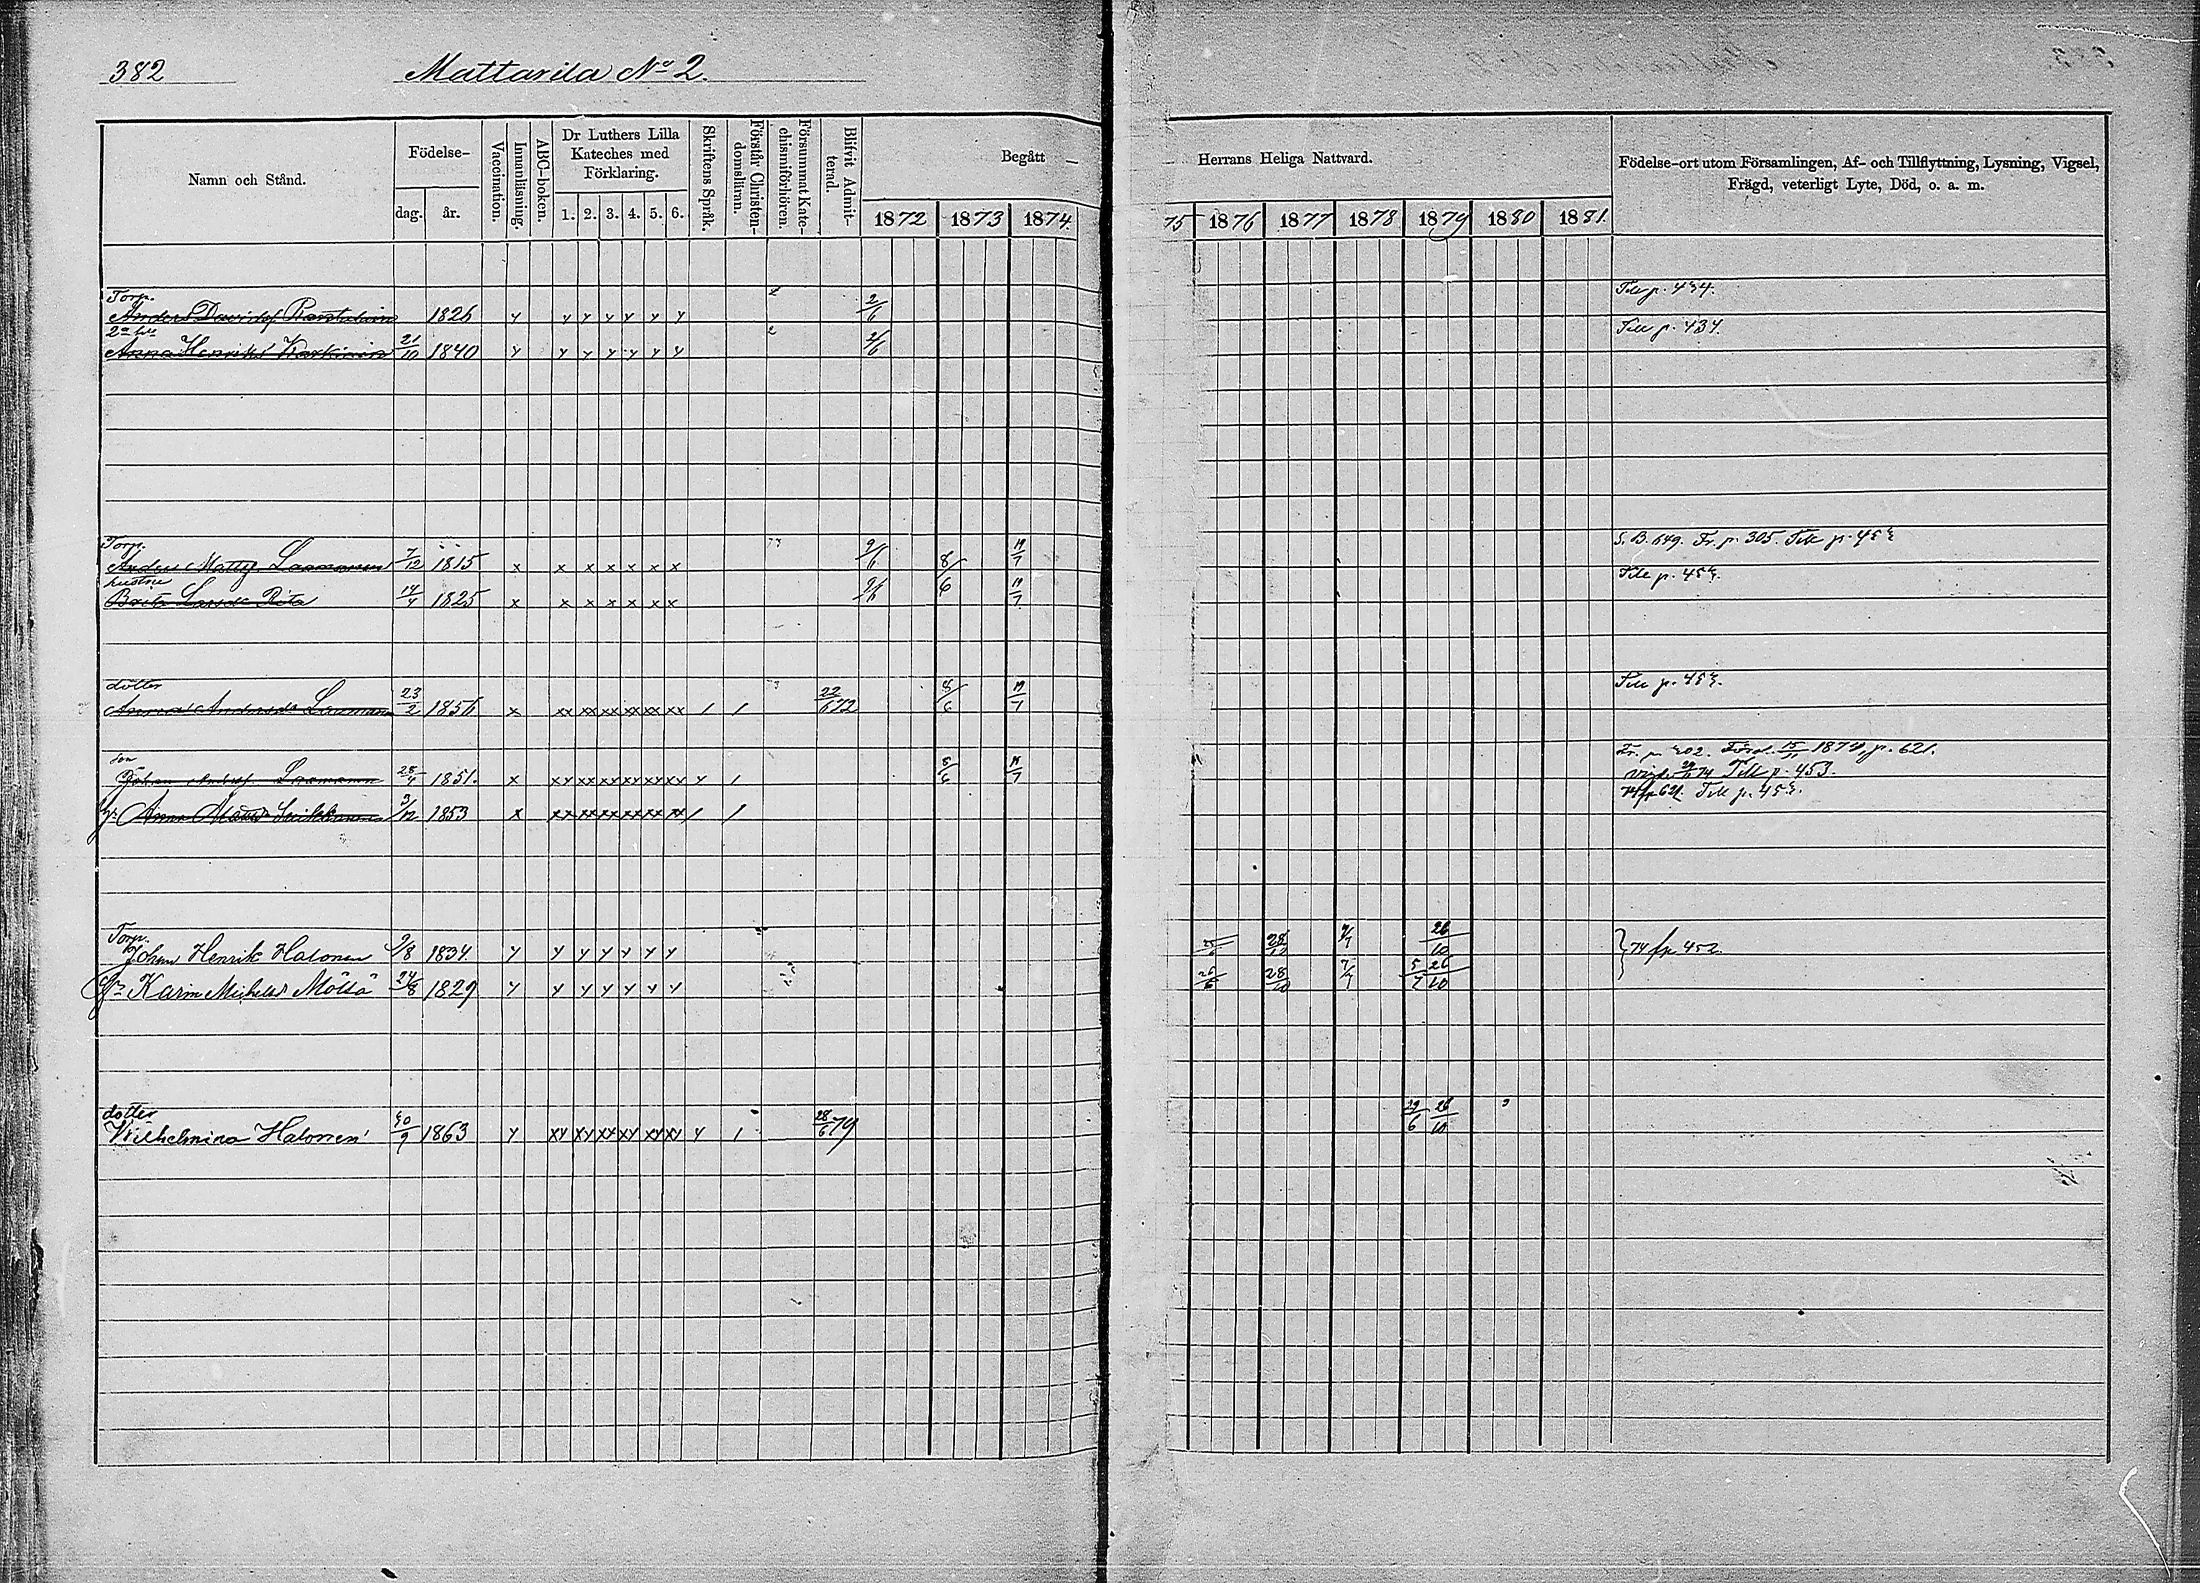 382 Mattarila No 2.
Namn och Stånd. Födelse- dag. år. Vaccination. Innanläsning. ABC-boken. Dr Luthers Lilla Kateches med Förklaring. 1. 2. 3. 4. 5. 6. Skriftens Språk. Förstår Christendomslärnn. Försummat Katechismiförhören. Blifvit Admitterad. Begått Herrans Heliga Nattvard. Födelse-ort utom Församlingen, Af- och Tillflyttning, Lysning, Vigsel, Frägd, veterligt Lyte, Död, o. a. m.
1872 1873 1874. 75 1876 1877 1878 1879 1880 1881.
Torp.
Anders Davidsf 1826 y y y y y y y 2/6 Till p. 434.
Anna Henriksd 21/10 1840 y y y y y y y 2/6 Till p. 434.
Torp.
Anders Mattsf. Laamanen 7/12 1815 x x x x x x x 9/6 8/6 19/7 S. B. 649. Fr. p. 305. Till p. 453
hustru
Brita Larsdr 14/4 1825 x x x x x x x 9/6 19/7 Till p. 453.
dotter
Anna Andersdr Laamanen 23/2 1856 x xx xx xx xx xx xx / / 22/6 72 8/6 19/7 Till p. 453.
son
Johan Andersf Laamanen 28/4 1851. x xy xx xx xx xx xy y / 8/6 19/7 Fr. p. 202. 15/11 1874, p. 621.
29/11 74 Till p. 453.
Anna Matsdr 3/12 1853 x xx xx xx xx xx xx / / 74 fr p 621 Till p. 453.
Torp.
Johan Henrik Halonen 9/8 1834. y y y y y y y 25/6 28/10 7/7 26/10 74 fr p. 452.
Karin Michelsd Möllö 24/8 1829 y y y y y y y 25/6 28/10 7/7 5/7 26/10
dotter
Wilhelmina Halonen 30/9 1863 y xy xy xy xy xy xy y / 28/6 79 29/6 26/10